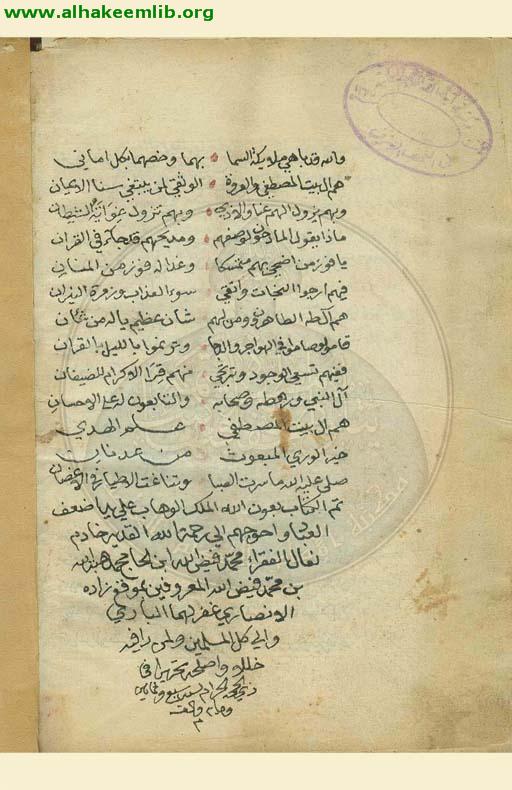 www.alhakeemlib.org
والله قد باهى ملائكة السما بهما وخصهما بكل اماني
هم ال بيت المصطفى والعروة الوثقى لمن يبتغي سنا الاعيان
وبهم يزول الهم عنا والاذى وبهم تزول غوائل الشيطان
ماذا يقول المادحون لوصفهم ومدحهم قد جاء في القران
يا فوز من اضحى بهم متمسكا وغدا له فوز من المنان
فبهم ارجوا النجاة واتقي سوء العذاب وزفرة النيران
هم آل طه الطاهرين ومن لهم شان عظيم ياله من شان
قاموا وصاموا في الهواجر والدجا وترنموا بالليل بالقران
وترتجي منهم قرا الاكرام للضيفان
آل النبي ورهطه وصحابه والتابعون لهم على الاحسان
هم ال بيت المصطفى علم الهدى
خير الورى المبعوث من عدنان
صلى عليه الله ما سرت الصبا وتناغت الاطيار في الاغصان
تم الكتاب بعون الله الملك الوهاب على يد اضعف
العباد واحوجهم الى رحمة الله القدير خادم
نعال الفقراء محمد فيض الله ابن الحاج محمد
بن محمد فيض الله المعروفين بموقع زاده
الانصاري غفر لهما الباري
والى كل المسلمين ولمن راى فيه
خللا واصلحه تحريرا في
ذي الحجة الحرام سنة سبع
والف
م